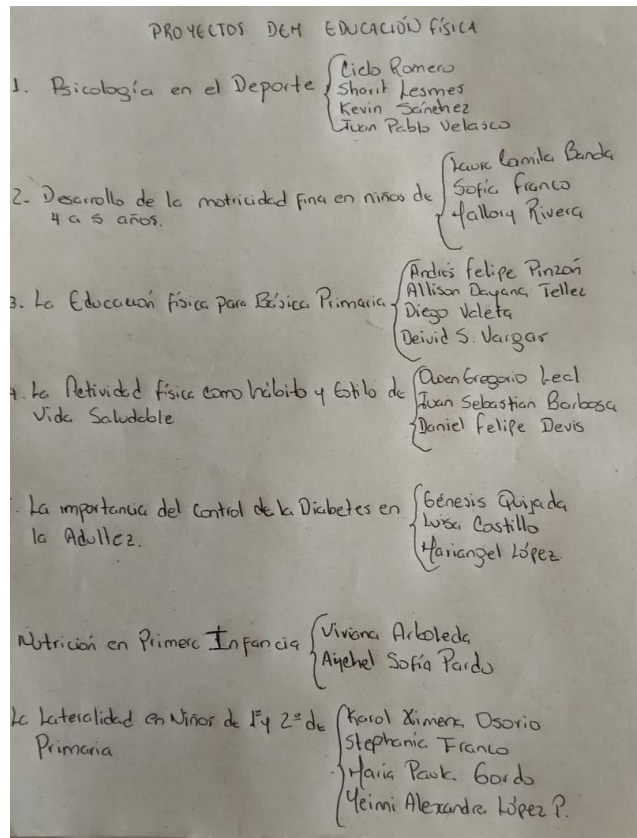 PROYECTOS DEM EDUCACIÓN FÍSICA
1. Psicología en el Deporte
Cielo Romero
Sharit Lesmes
Kevin Sánchez
Juan Pablo Velasco
2- Desarrollo de la motricidad fina en niños de
4 a 5 años.
Laura Camila Banda
Sofía Franco
Mallory Rivera
3. La Educación física para Básica Primaria
Andrés Felipe Pinzón
Allison Dayana Tellez
Diego Valeta
Deivid S. Vargas
4. La Actividad física como hábito y Estilo de
Vida Saludable
Owen Gregorio Leal
Juan Sebastian Barbosa
Daniel Felipe Devis
. La importancia del control de la Diabetes en
la Adultez.
Génesis Quijada
Luisa Castillo
Mariangel López
Nutrición en Primera Infancia
Viviana Arboleda
Sofía Pardo
La Lateralidad en Niños de 1º y 2º de
Primaria
Karol Ximena Osorio
Stephania Franco
Maria Paula Gordo
Yeimi Alexandra López P.